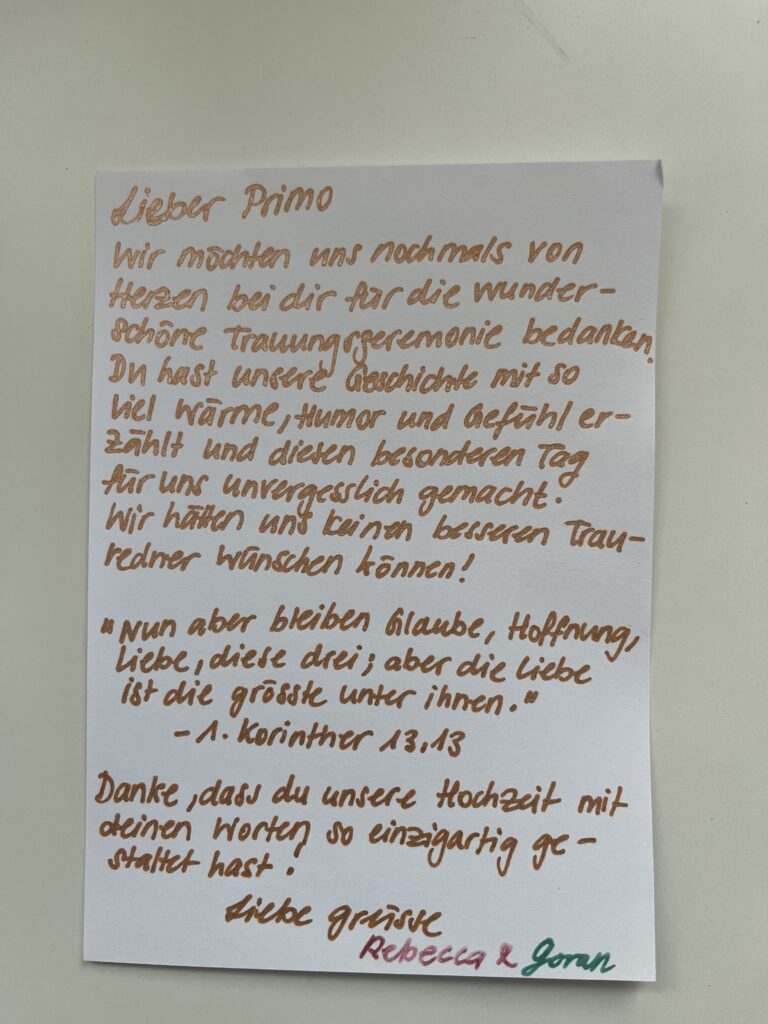 Lieber Primo
Wir möchten uns nochmals von
Herzen bei dir für die wunder-
schöne Trauungszeremonie bedanken.
Du hast unsere Geschichte mit so
viel Wärme, Humor und Gefühl er-
zählt und diesen besonderen Tag
für uns unvergesslich gemacht.
Wir hätten uns keinen besseren Trau-
redner wünschen können!
"Nun aber bleiben Glaube, Hoffnung,
Liebe, diese drei; aber die Liebe
ist die grösste unter ihnen."
- 1. Korinther 13,13
Danke, dass du unsere Hochzeit mit
deinen Worten so einzigartig ge-
staltet hast!
Liebe grüsse
Rebecca & Goran